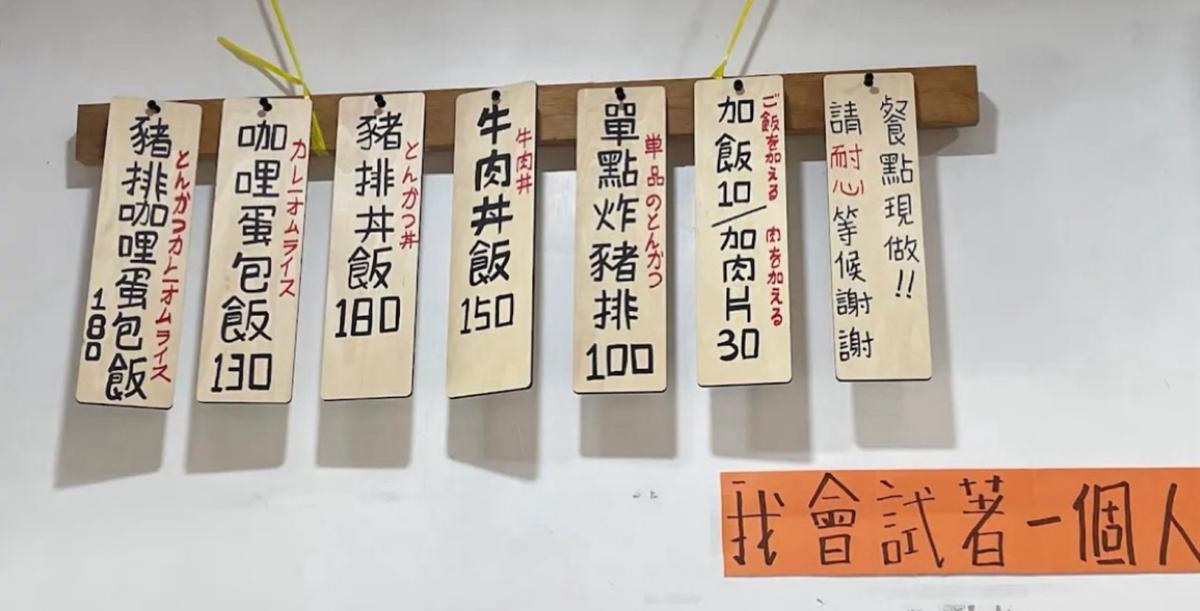 豬排咖哩蛋包飯
180
とんかつカレーオムライス
咖哩蛋包飯130
カレーオムライス
豬排丼飯180
とんかつ丼
牛肉丼飯150
牛肉丼
單點炸豬排100
単品のとんかつ
加飯10/加肉片30
ご飯を加える 肉を加える
餐點現做!!
請耐心等候謝謝
我會試著一個人